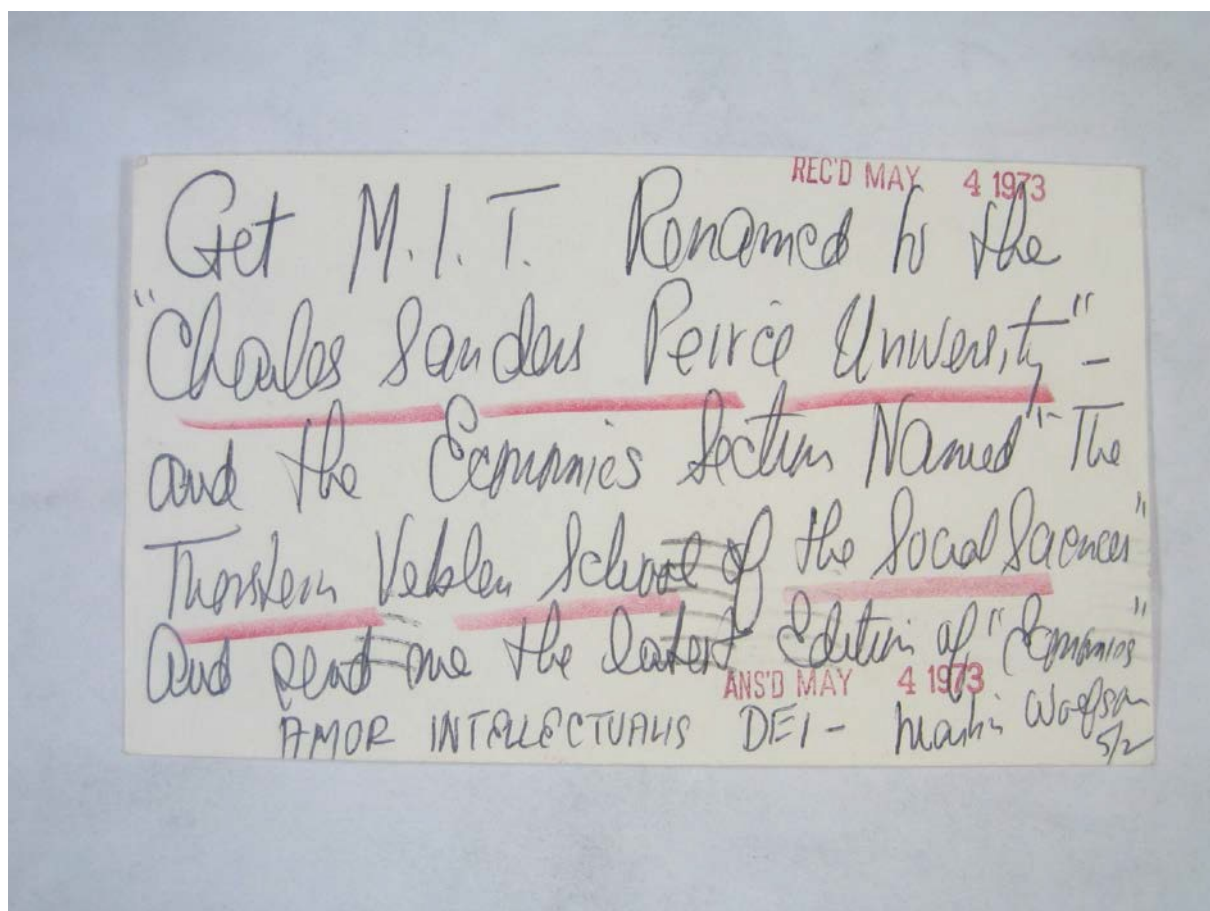 REC'D MAY 4 1973
Get M.I.T. Renamed to the
"Charles Sanders Peirce University" –
and the Economics Section Named "The
Thorstein Veblen School of the Social Sciences"
And send me the latest Edition of "Economics"
ANS'D MAY 4 1973
AMOR INTELLECTUALIS DEI – Martin Wolfson
5/2